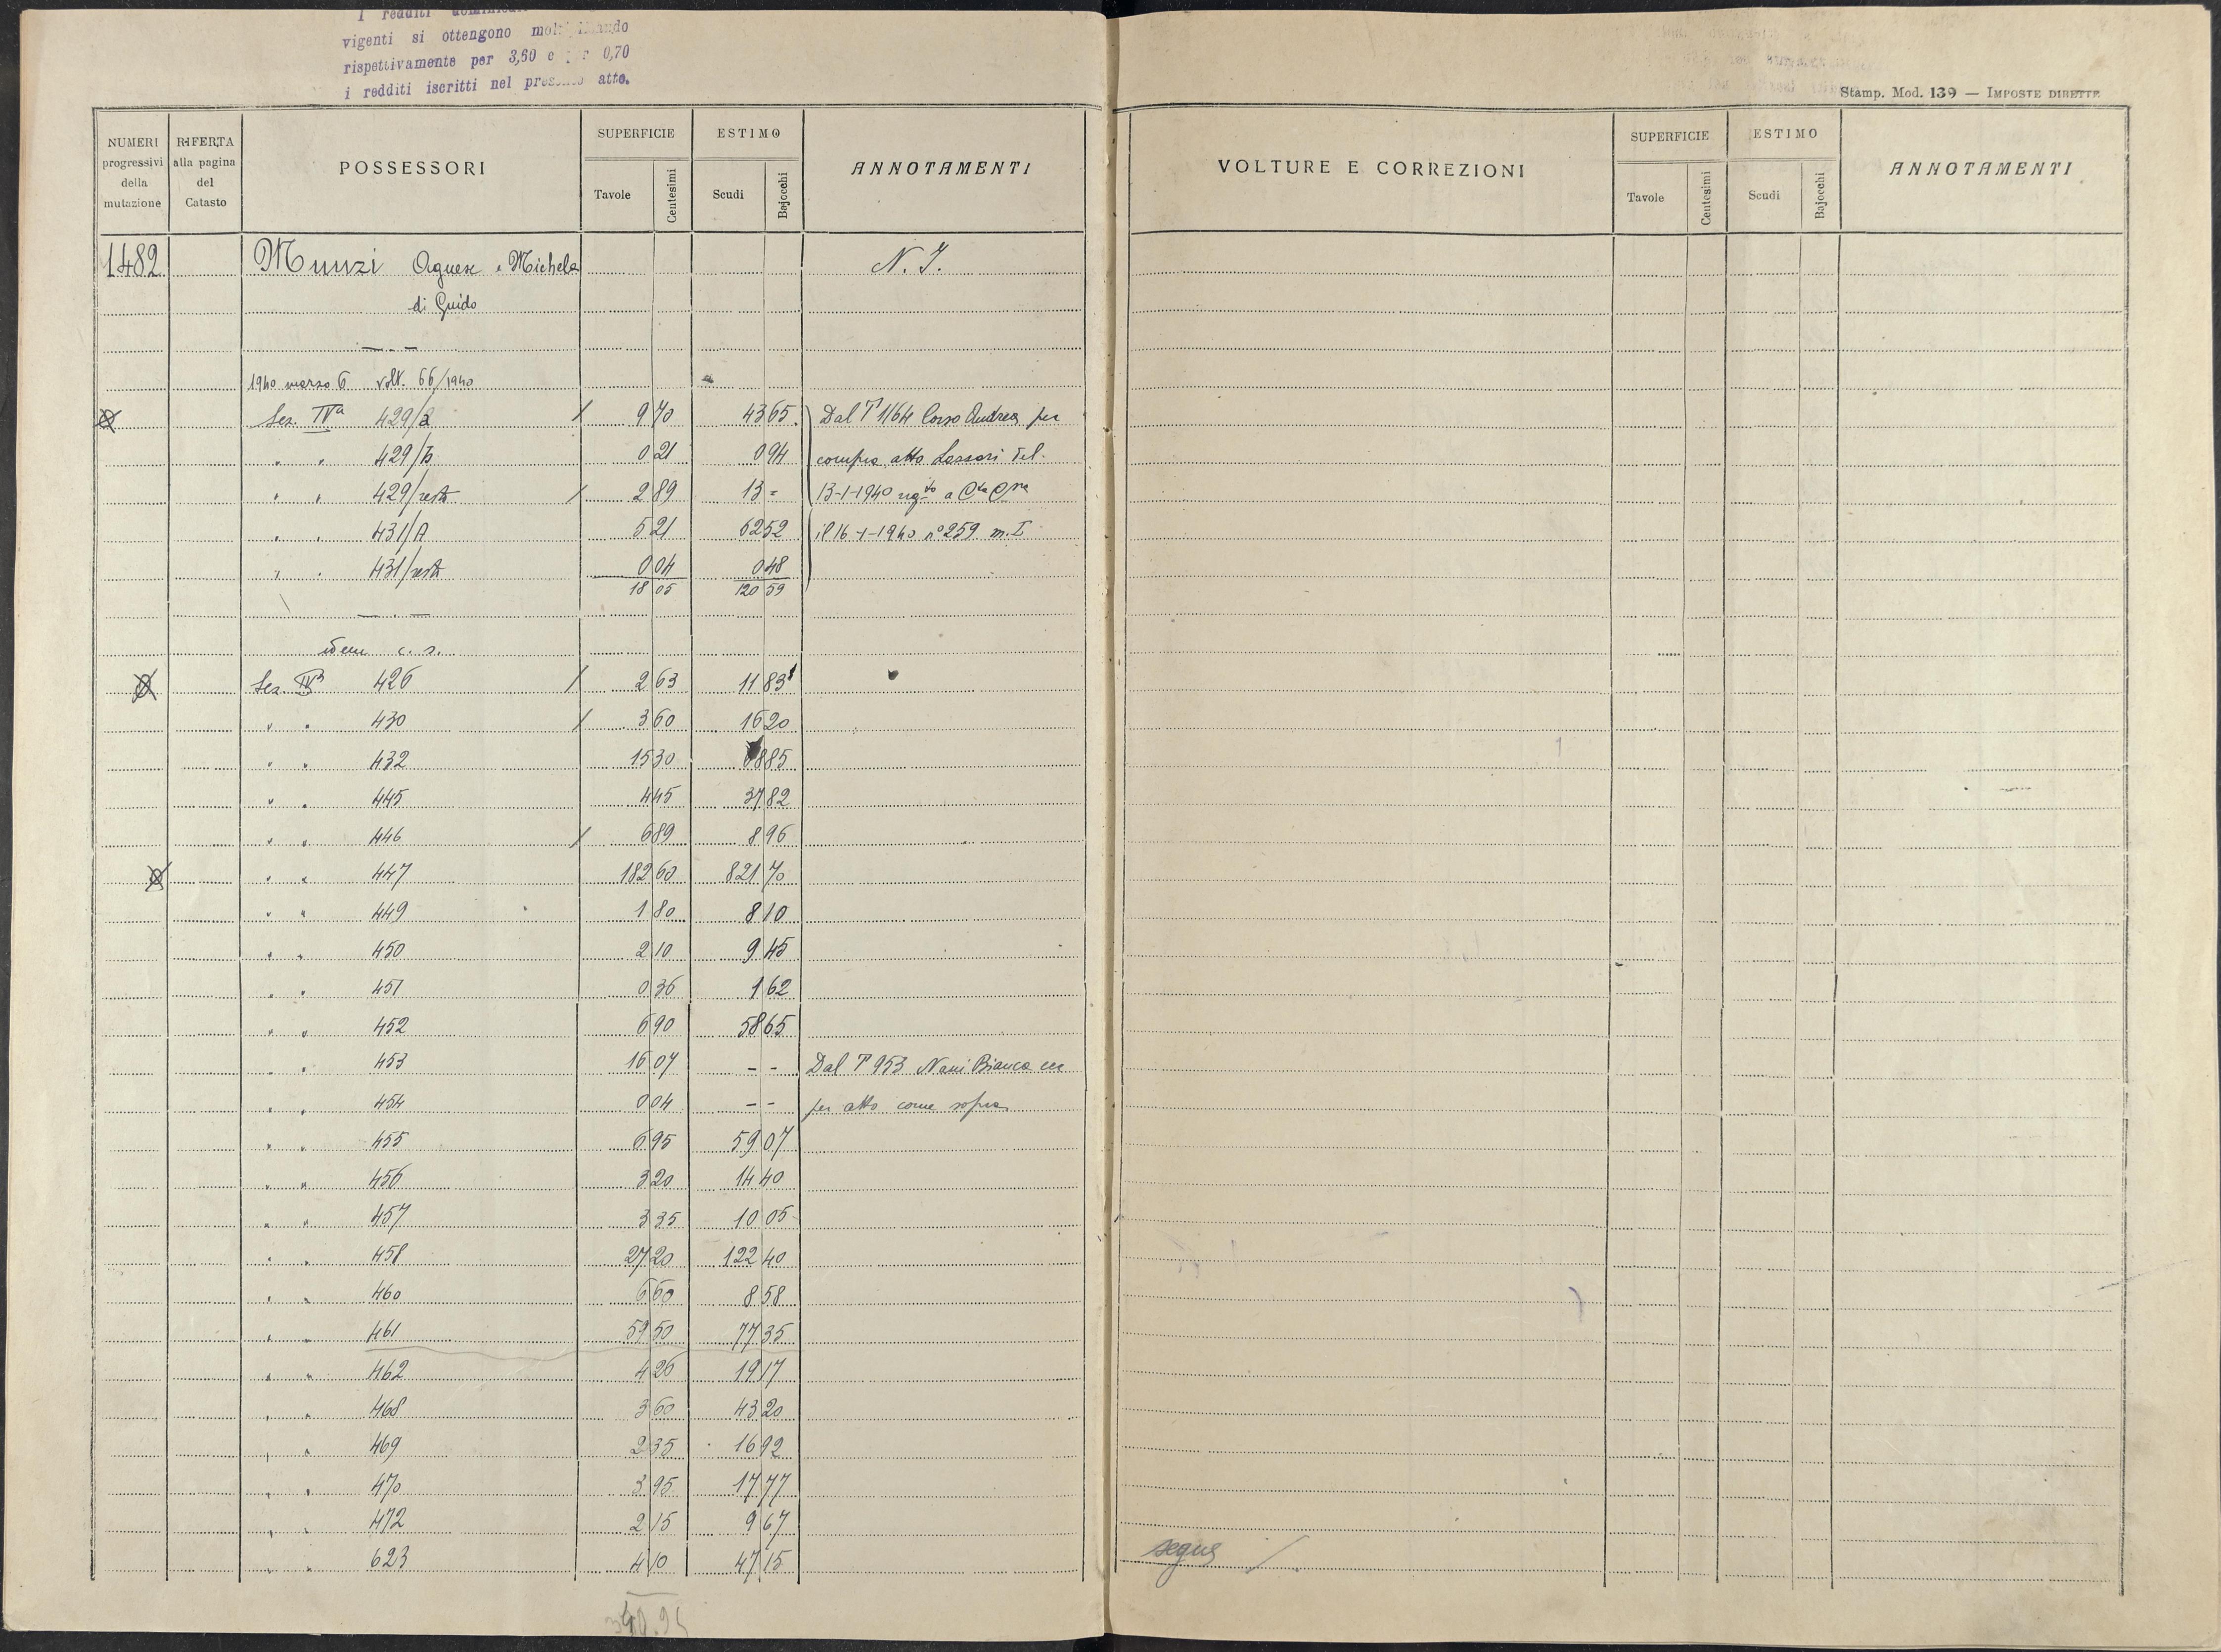 I redditi
vigenti si ottengono
rispettivamente per 3,60 e per 0,70
i redditi iscritti nel presente atto.
Stamp. Mod. 139 — IMPOSTE DIRETTE
NUMERI progressivi della mutazione
RIFERTA alla pagina del Catasto
POSSESSORI
SUPERFICIE Tavole Centesimi
ESTIMO Scudi Bajocchi
ANNOTAMENTI
VOLTURE E CORREZIONI
SUPERFICIE Tavole Centesimi
ESTIMO Scudi Bajocchi
ANNOTAMENTI
1482 Munzi Agnese e Michela N. I.
di Guido
1940 marzo 6 volt. 66/1940
Sez. IVa 429/a / 9 70 43 65 Dal P 1164 Corso Andrea per
" " 429/b 0 21 0 94 compra atto Lassari del
" " 429/resto / 2 89 13 = 13-1-1940 a
" " 431/A 5 21 62 52 il 16-1-1940 n° 259 m. I
" " 431/resto 0 04 0 48
18 05 120 59
idem c. s.
Sez. IVa 426 / 2 63 11 83
" " 430 / 3 60 16 20
" " 432 15 30 885
" " 445 4 45 37 82
" " 446 / 6 89 8 96
" " 447 182 60 821 70
" " 449 1 80 8 10
" " 450 2 10 9 45
" " 451 0 36 1 62
" " 452 6 90 58 65
" " 453 16 07 - - Dal P 953 Nani Bianca ecc
" " 454 0 04 - - per atto come sopra
" " 455 6 95 59 07
" " 456 3 20 14 40
" " 457 3 35 10 05
" " 458 27 20 122 40
" " 460 6 60 8 58
" " 461 59 50 77 35
" " 462 4 26 19 17
" " 468 3 60 43 20
" " 469 2 35 16 92
" " 470 3 95 17 77
" " 472 2 15 9 67
" " 623 4 10 47 15
segue /.